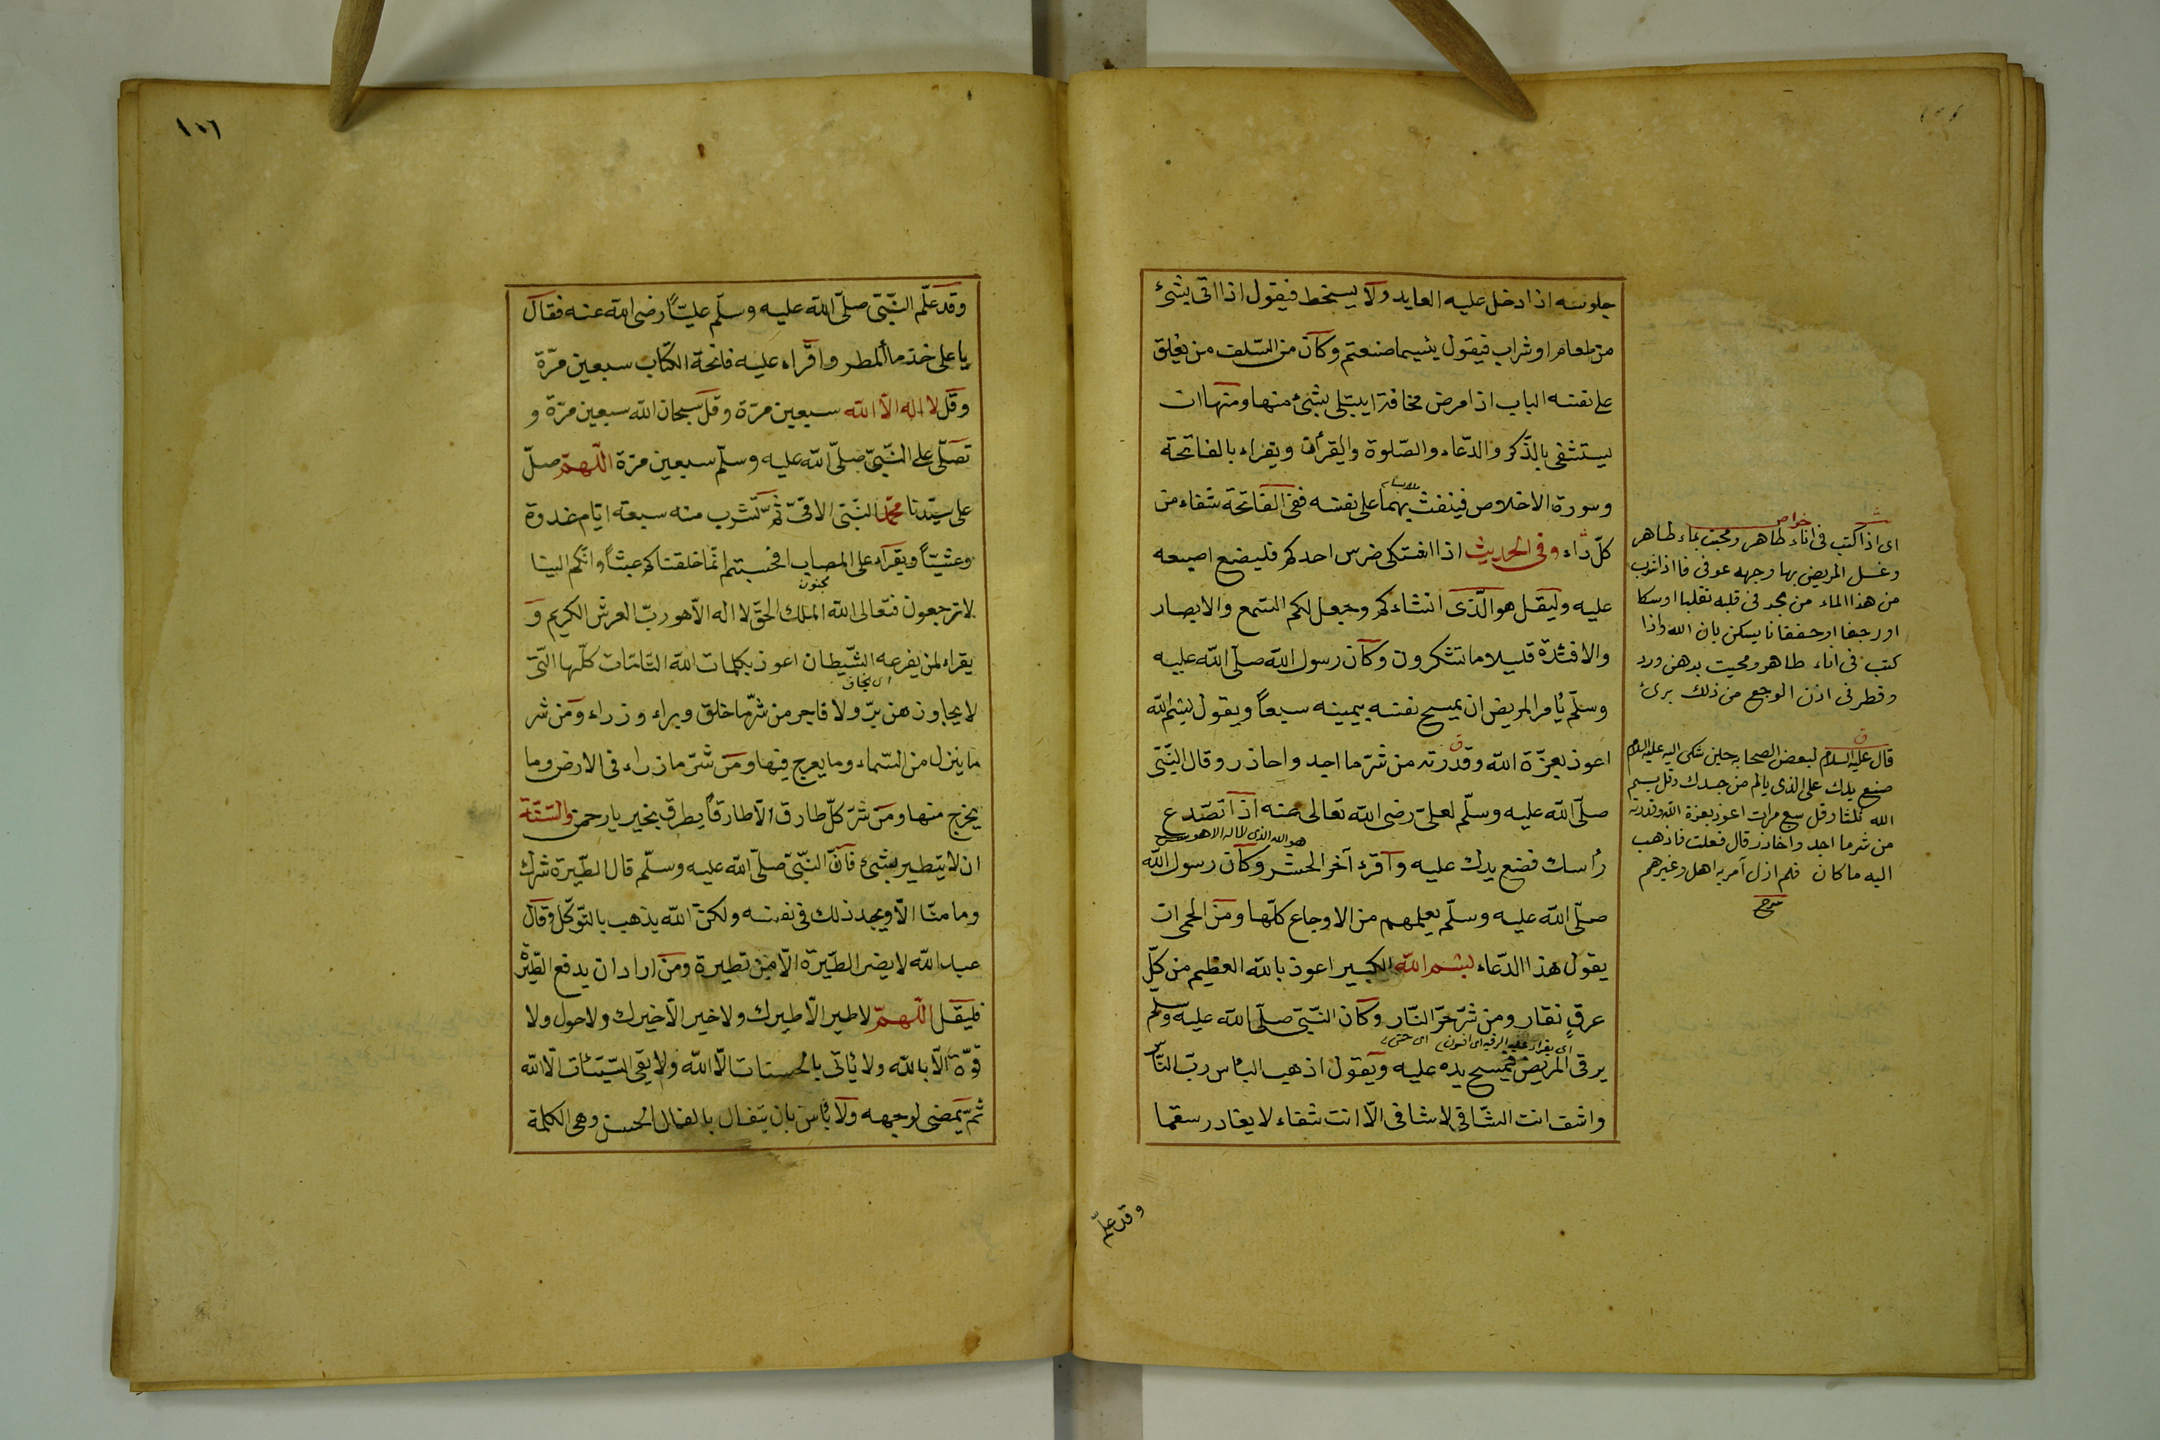 جلوسه اذا دخل عليه العايد ولا يسخط فيقول اذا اتى بشئ
من طعام او شراب فيقول بئسما صنعتم وكان من السلف من يغلق
على نفسه الباب اذا مرض مخافة ان يبتلى بشئ منها ومنها ان
يستشفى بالذكر والدعاء والصلوة والقرآن ويقراء بالفاتحة
وسورة الاخلاص فينفث بهما على نفسه ففى الفاتحة شفاء من
كل داء وفى الحديث اذا اشتكى ضرس احدكم فليضع اصبعه
عليه وليقل هو الذى انشاءكم وجعل لكم السمع والابصار
والافئدة قليلا ما تشكرون وكان رسول الله صلى الله عليه
وسلم يأمر المريض ان يمسح نفسه بيمينه سبعاً ويقول بسم الله
اعوذ بعزة الله وقدرته من شر ما اجد واحاذر وقال النبى
صلى الله عليه وسلم لعلى رضى الله تعالى عنه اذا تصدع
هو الله الذى لا اله الا هو
رأسك فضع يدك عليه واقرء آخر الحشر وكان رسول الله
صلى الله عليه وسلم يعلمهم من الاوجاع كلها ومن الحميات
يقول هذا الدعاء بسم الله الكبير اعوذ بالله العظيم من كل
عرق نقار ومن شر حر النار وكان النبى صلى الله عليه وسلم
يرقى المريض فيمسح يده عليه ويقول اذهب البأس رب الناس
واشف انت الشافى لا شافى الا انت شفاء لا يغادر سقما
خواص
اى اذا كتب فى اناء طاهر ومحيت بماء طاهر
وغسل المريض بها وجهه عوفى فاذا شرب
من هذا الماء من يجد فى قلبه تقلبا او سكا
او رجفا او خفقانا يسكن بان الله واذا
كتب فى اناء طاهر ومحيت بدهن ورد
وقطر فى اذن الوجع من ذلك برئ
قال عليه السلام لبعض الصحابه حين شكى اليه عليه السلام
ضع يدك على الذى يالم من جسدك وقل بسم
الله ثلثا وقل سبع مرات اعوذ بعزة الله وقدرته
من شر ما اجد واحاذر قال فعلت فاذهب
الله ما كان فلم ازل آمر به اهل وغيرهم
وقد علم
١٠٦
وقد علم النبى صلى الله عليه وسلم علياً رضى الله عنه فقال
يا على خذ ماء المطر واقراء عليه فاتحة الكتاب سبعين مرة
وقل لا اله الا الله سبعين مرة وقل سبحان الله سبعين مرة و
تصلى على النبى صلى الله عليه وسلم سبعين مرة اللهم صل
على سيدنا محمد النبى الامى ثم تشرب منه سبعة ايام غدوة
وعشيتاً ويقراء على المصاب افحسبتم انما خلقناكم عبثاً وانكم الينا
مجنون
لا ترجعون فتعالى الله الملك الحق لا اله الا هو رب العرش الكريم و
يقراء لمن يفزعه الشيطان اعوذ بكلمات الله التامات كلها التى
اى يخاف
لا يجاوزهن بر ولا فاجر من شر ما خلق وبراء وذراء ومن شر
ما ينزل من السماء وما يعرج فيها ومن شر ما ذراء فى الارض وما
يخرج منها ومن شر كل طارق الا طارقاً يطرق بخير يا رحمن والسنة
ان لا يتطير بشئ فان النبى صلى الله عليه وسلم قال الطيرة شرك
وما منا الا ويجد ذلك فى نفسه ولكن الله يذهب بالتوكل وقال
عبد الله لا يضر الطيرة الا من تطيرة ومن اراد ان يدفع الطيرة
فليقل اللهم لا طير الا طيرك ولا خير الا خيرك ولا حول ولا
قوة الا بالله ولا يأتى بالحسنات الا الله ولا يقى السيئات الا الله
ثم يمضى لوجهه ولا بأس بان يتفال بالفال الحسن وهى الكلمة